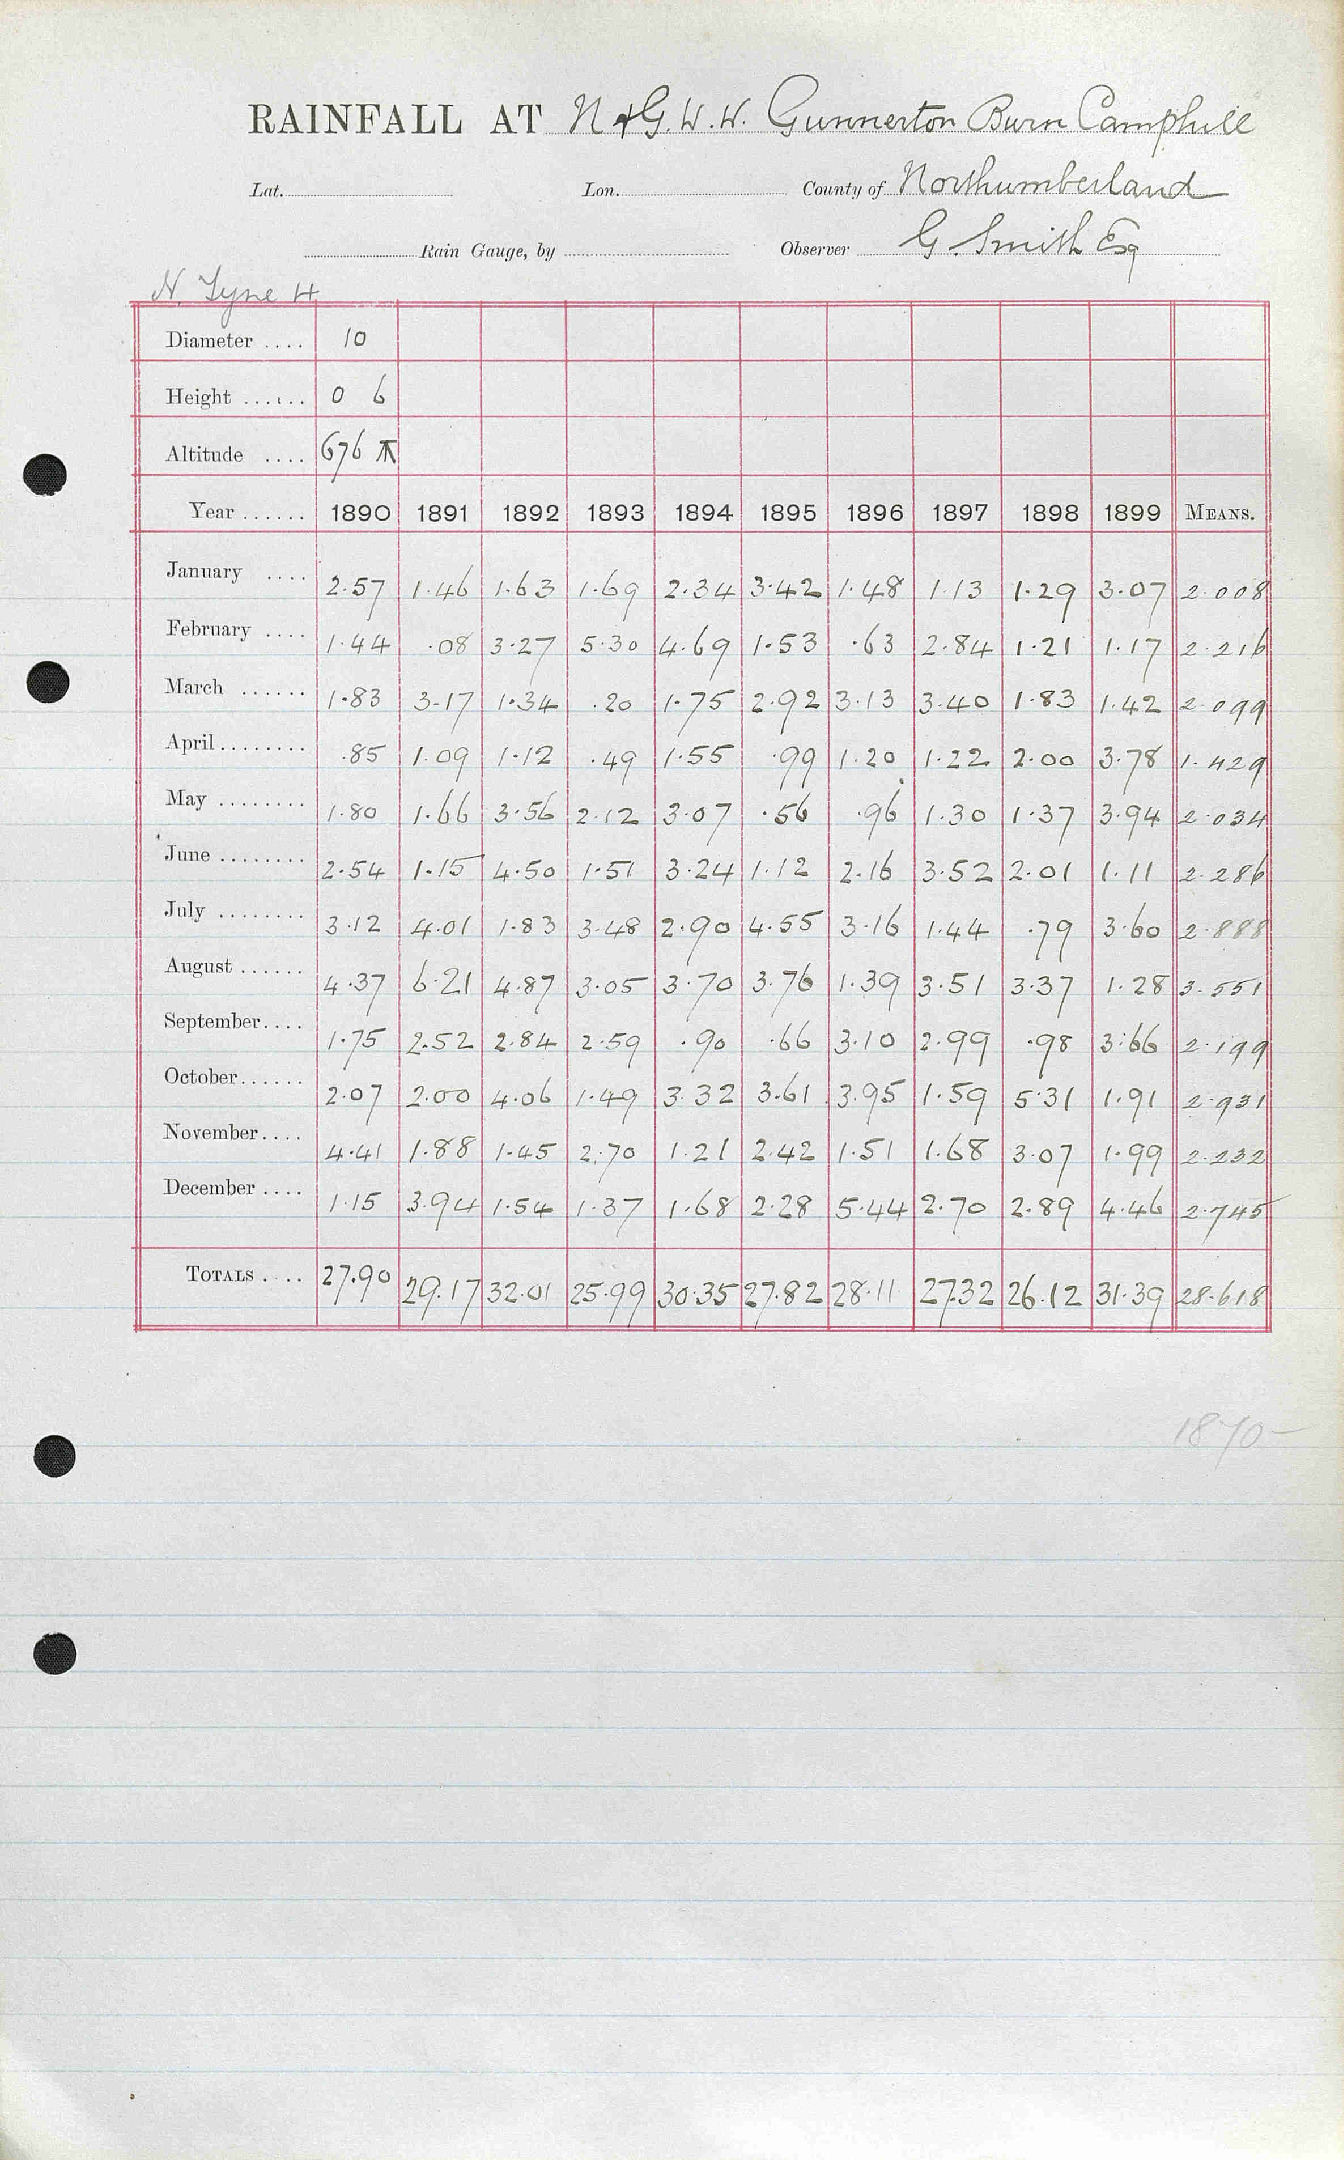 RAINFALL AT N & G. W. W. Gunnerton Burn Camphill
Lat. Lon. County of Northumberland
Rain Gauge, by Observer G. Smith Esq
N. Tyne 4
Diameter .... 10
Height ...... 0 6
Altitude .... 676
Year ...... 1890 1891 1892 1893 1894 1895 1896 1897 1898 1899 MEANS.
January .... 2.57 1.46 1.63 1.69 2.34 3.42 1.48 1.13 1.29 3.07 2.008
February .... 1.44 .08 3.27 5.30 4.69 1.53 .63 2.84 1.21 1.17 2.216
March ...... 1.83 3.17 1.34 .20 1.75 2.92 3.13 3.40 1.83 1.42 2.099
April ........ .85 1.09 1.12 .49 1.55 .99 1.20 1.22 2.00 3.78 1.429
May ........ 1.80 1.66 3.56 2.12 3.07 .56 .96 1.30 1.37 3.94 2.034
June ........ 2.54 1.15 4.50 1.51 3.24 1.12 2.16 3.52 2.01 1.11 2.286
July ........ 3.12 4.01 1.83 3.48 2.90 4.55 3.16 1.44 .79 3.60 2.888
August ...... 4.37 6.21 4.87 3.05 3.70 3.76 1.39 3.51 3.37 1.28 3.551
September .... 1.75 2.52 2.84 2.59 .90 .66 3.10 2.99 .98 3.66 2.199
October ...... 2.07 2.00 4.06 1.49 3.32 3.61 3.95 1.59 5.31 1.91 2.931
November .... 4.41 1.88 1.45 2.70 1.21 2.42 1.51 1.68 3.07 1.99 2.232
December .... 1.15 3.94 1.54 1.37 1.68 2.28 5.44 2.70 2.89 4.46 2.745
TOTALS .... 27.90 29.17 32.01 25.99 30.35 27.82 28.11 27.32 26.12 31.39 28.618
1870-